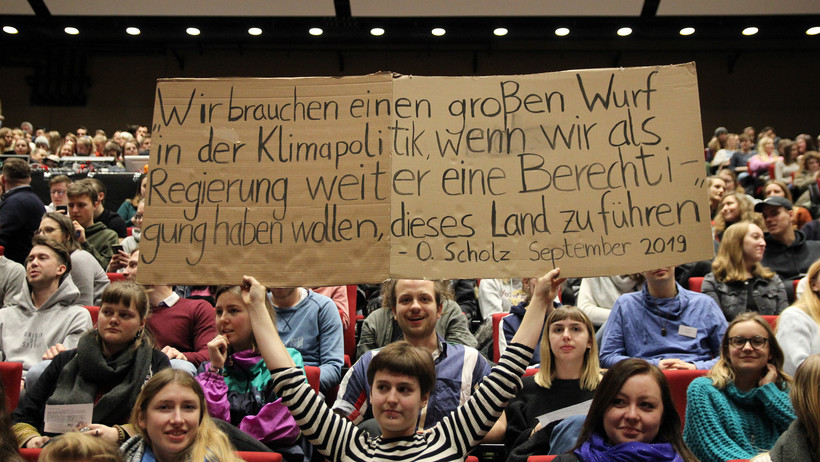 "Wir brauchen einen großen Wurf
in der Klimapolitik, wenn wir als
Regierung weiter eine Berechti-
gung haben wollen, dieses Land zu führen"
- O. Scholz September 2019